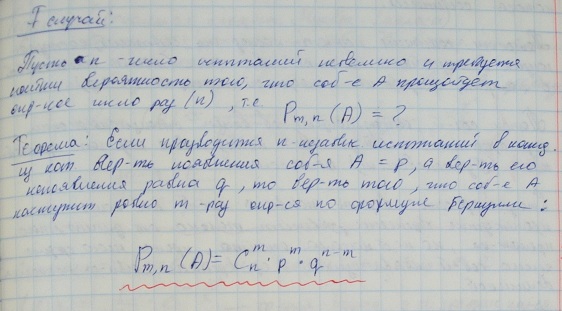 I случай:
Пусть n - число испытаний невелико и требуется
найти вероятность того, что соб-е A произойдет
опр-ное число раз (n), т.е
Pm,n (A) = ?
Теорема: Если производится n-независ испытаний в кажд.
из кот вер-ть появления соб-я A = p, а вер-ть его
непоявления равна q, то вер-ть того, что соб-е A
наступит ровно m-раз опр-ся по формуле Бернулли:
Pm,n (A) = Cₙᵐ · pᵐ · qⁿ⁻ᵐ